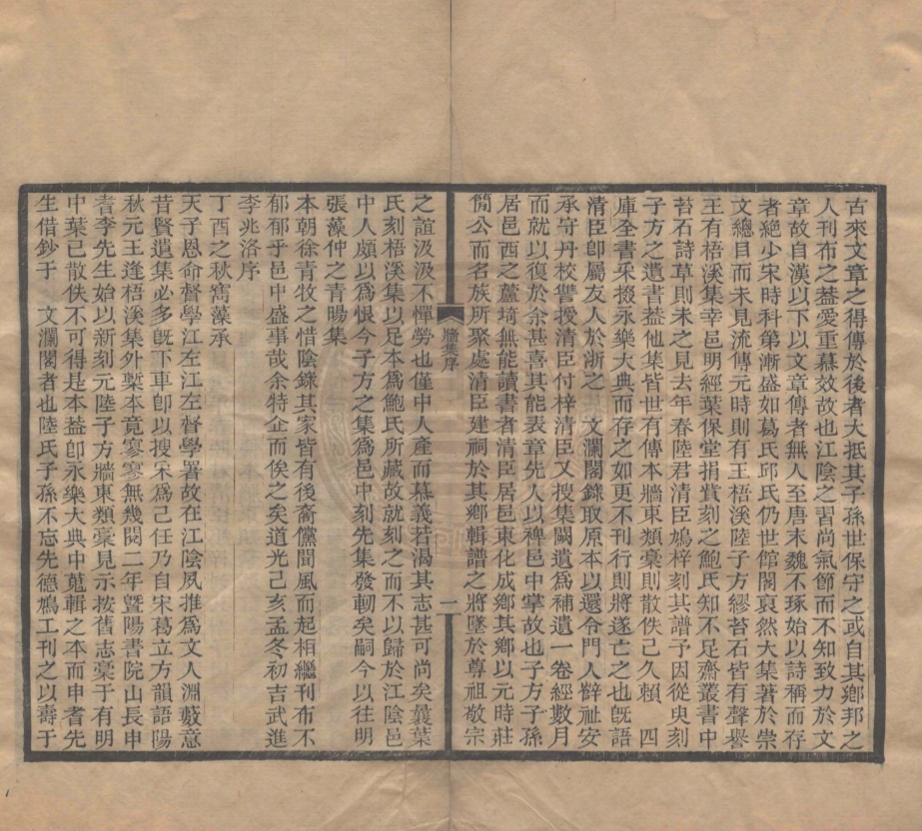 古來文章之得傳於後者大抵其子孫世保守之或自其鄉邦之
人刊布之葢愛重慕效故也江陰之習尚氣節而不知致力於文
章故自漢以下以文章傳者無人至唐末魏不琢始以詩稱而存
者絶少宋時科第漸盛如葛氏邱氏仍世館閣裒然大集著於崇
文總目而未見流傳元時則有王梧溪陸子方繆苔石皆有聲譽
王有梧溪集幸邑明經葉保堂捐貲刻之鮑氏知不足齋叢書中
苔石詩草則未之見去年春陸君清臣鳩梓刻其譜予因從臾刻
子方之遺書葢他集皆世有傳本牆東類稾則散佚已久賴、四
庫全書采掇永樂大典而存之如更不刊行則將遂亡之也旣語
清臣卽屬友人於浙之 文瀾閣錄取原本以還令門人辥祉安
承守丹校讐授清臣付梓清臣又搜集闕遺爲補遺一卷經數月
而就以復於余甚喜其能表章先人以裨邑中掌故也子方子孫
居邑西之蘆埼無能讀書者清臣居邑東化成鄉其鄉以元時莊
簡公而名族所聚處清臣建祠於其鄉輯譜之將墜於尊祖敬宗
牆東序
一
之誼汲汲不憚勞也僅中人產而慕義若渴其志甚可尚矣曩葉
氏刻梧溪集以足本爲鮑氏所藏故就刻之而不以歸於江陰邑
中人頗以爲恨今子方之集爲邑中刻先集發軔矣嗣今以往明
張藻仲之青暘集
本朝徐青牧之惜陰錄其家皆有後裔儻聞風而起相繼刊布不
郁郁乎邑中盛事哉余特企而俟之矣道光己亥孟冬初吉武進
李兆洛序
丁酉之秋寯藻承
天子恩命督學江左江左督學署故在江陰夙推爲文人淵藪意
昔賢遺集必多旣下車卽以搜采爲己任乃自宋葛立方韻語陽
秋元王逢梧溪集外槧本竟寥寥無幾閱二年暨陽書院山長申
耆李先生始以新刻元陸子方牆東類稾見示按舊志稾于有明
中葉已散佚不可得是本葢卽永樂大典中蒐輯之本而申耆先
生借鈔于 文瀾閣者也陸氏子孫不忘先德鳩工刊之以壽于